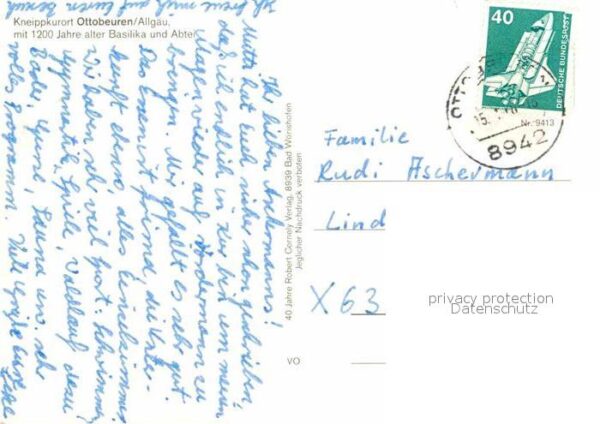 Kneippkurort Ottobeuren/Allgäu,
mit 1200 Jahre alter Basilika und Abtei
Ihr lieben
Mutti hat euch sicher schon geschrieben,
daß ich endlich in zur bin um meinen
Magen wieder auf zu
bringen. Mir gefällt es sehr gut.
Das Essen ist prima, die Unter-
kunft ebenso, alles Einzelzimmer.
Wir haben sehr viel Sport: Schwimmen,
Gymnastik, Spiele, dazu
Bäder, Sauna usw. sehr
volles Programm. Viele Grüße
Ich freue mich auf euren Besuch
40 Jahre Robert Cornely Verlag, 8939 Bad Wörishofen
Jeglicher Nachdruck verboten
VO
40
DEUTSCHE BUNDESPOST
Nr. 9413
8942
Familie
Rudi Aschermann
Lind
X 63
privacy protection
Datenschutz